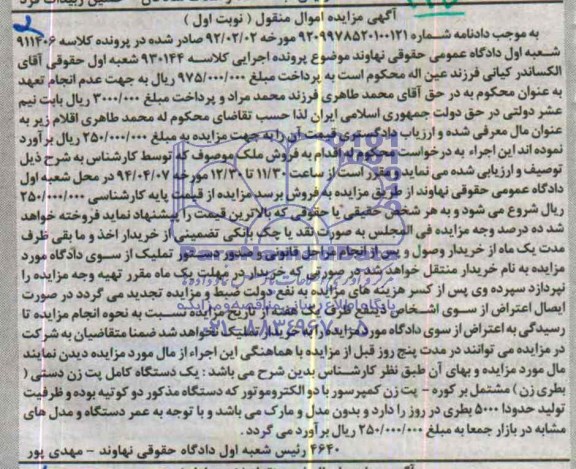 آگهی مزایده اموال منقول ( نوبت اول )
به موجب دادنامه شماره ۹۲۰۹۹۷۸۵۲۰۱۰۰۱۲۱ مورخه ۹۲/۰۲/۰۲ صادر شده در پرونده کلاسه ۹۱۱۴۰۶
شعبه اول دادگاه عمومی حقوقی نهاوند موضوع پرونده اجرایی کلاسه ۹۳۰۱۴۴ شعبه اول حقوقی آقای
الکساندر کیانی فرزند عین اله محکوم است به پرداخت مبلغ ۹۷۵/۰۰۰/۰۰۰ ریال به جهت عدم انجام تعهد
به عنوان محکوم به در حق آقای محمد طاهری فرزند محمد مراد و پرداخت مبلغ ۳۰۰۰/۰۰۰ ریال بابت نیم
عشر دولتی در حق دولت جمهوری اسلامی ایران لذا حسب تقاضای محکوم له محمد طاهری اقلام زیر به
عنوان مال معرفی شده و ارزیاب دادگستری قیمت آن را به جهت مزایده به مبلغ ۲۵۰/۰۰۰/۰۰۰ ریال برآورد
نموده اند این اجراء به درخواست محکوم له اقدام به فروش ملک موصوف که توسط کارشناس به شرح ذیل
توصیف و ارزیابی شده می نماید و مقرر است از ساعت ۱۱/۳۰ تا ۱۲/۳۰ مورخه ۹۴/۰۴/۰۷ در محل شعبه اول
دادگاه عمومی حقوقی نهاوند از طریق مزایده به فروش برسد مزایده از قیمت پایه کارشناسی ۲۵۰/۰۰۰/۰۰۰
ریال شروع می شود و به هر شخص حقیقی یا حقوقی که بالاترین قیمت را پیشنهاد نماید فروخته خواهد
شد ده درصد وجه مزایده فی المجلس به صورت نقد یا چک بانکی تضمینی از خریدار اخذ و ما بقی ظرف
مدت یک ماه از خریدار وصول و پس از انجام مراحل قانونی و صدور دستور تملیک از سوی دادگاه مورد
مزایده به نام خریدار منتقل خواهد شد در صورتی که خریدار در مهلت یک ماه مقرر تهیه وجه مزایده را
نپردازد سپرده وی پس از کسر هزینه های مزایده به نفع دولت ضبط و مزایده تجدید می گردد در صورت
ایصال اعتراض از سوی اشخاص ذینفع ظرف یک هفته از تاریخ مزایده نسبت به نحوه انجام مزایده تا
رسیدگی به اعتراض از سوی دادگاه مورد مزایده را به خریدار تملیک نخواهد شد ضمنا متقاضیان به شرکت
در مزایده می توانند در مدت پنج روز قبل از مزایده با هماهنگی این اجراء از مال مورد مزایده دیدن نمایند
مال مورد مزایده و بهای آن طبق نظر کارشناس بدین شرح می باشد : یک دستگاه کامل پت زن دستی (
بطری زن ) مشتمل بر کوره - پت زن کمپرسور با دو الکتروموتور که دستگاه مذکور دو کوتیه بوده و ظرفیت
تولید حدودا ۵۰۰۰ بطری در روز را دارد و بدون مدل و مارک می باشد و با توجه به عمر دستگاه و مدل های
مشابه در بازار جمعا به مبلغ ۲۵۰/۰۰۰/۰۰۰ ریال برآورد می گردد .
۴۶۴۰ رئیس شعبه اول دادگاه حقوقی نهاوند - مهدی پور